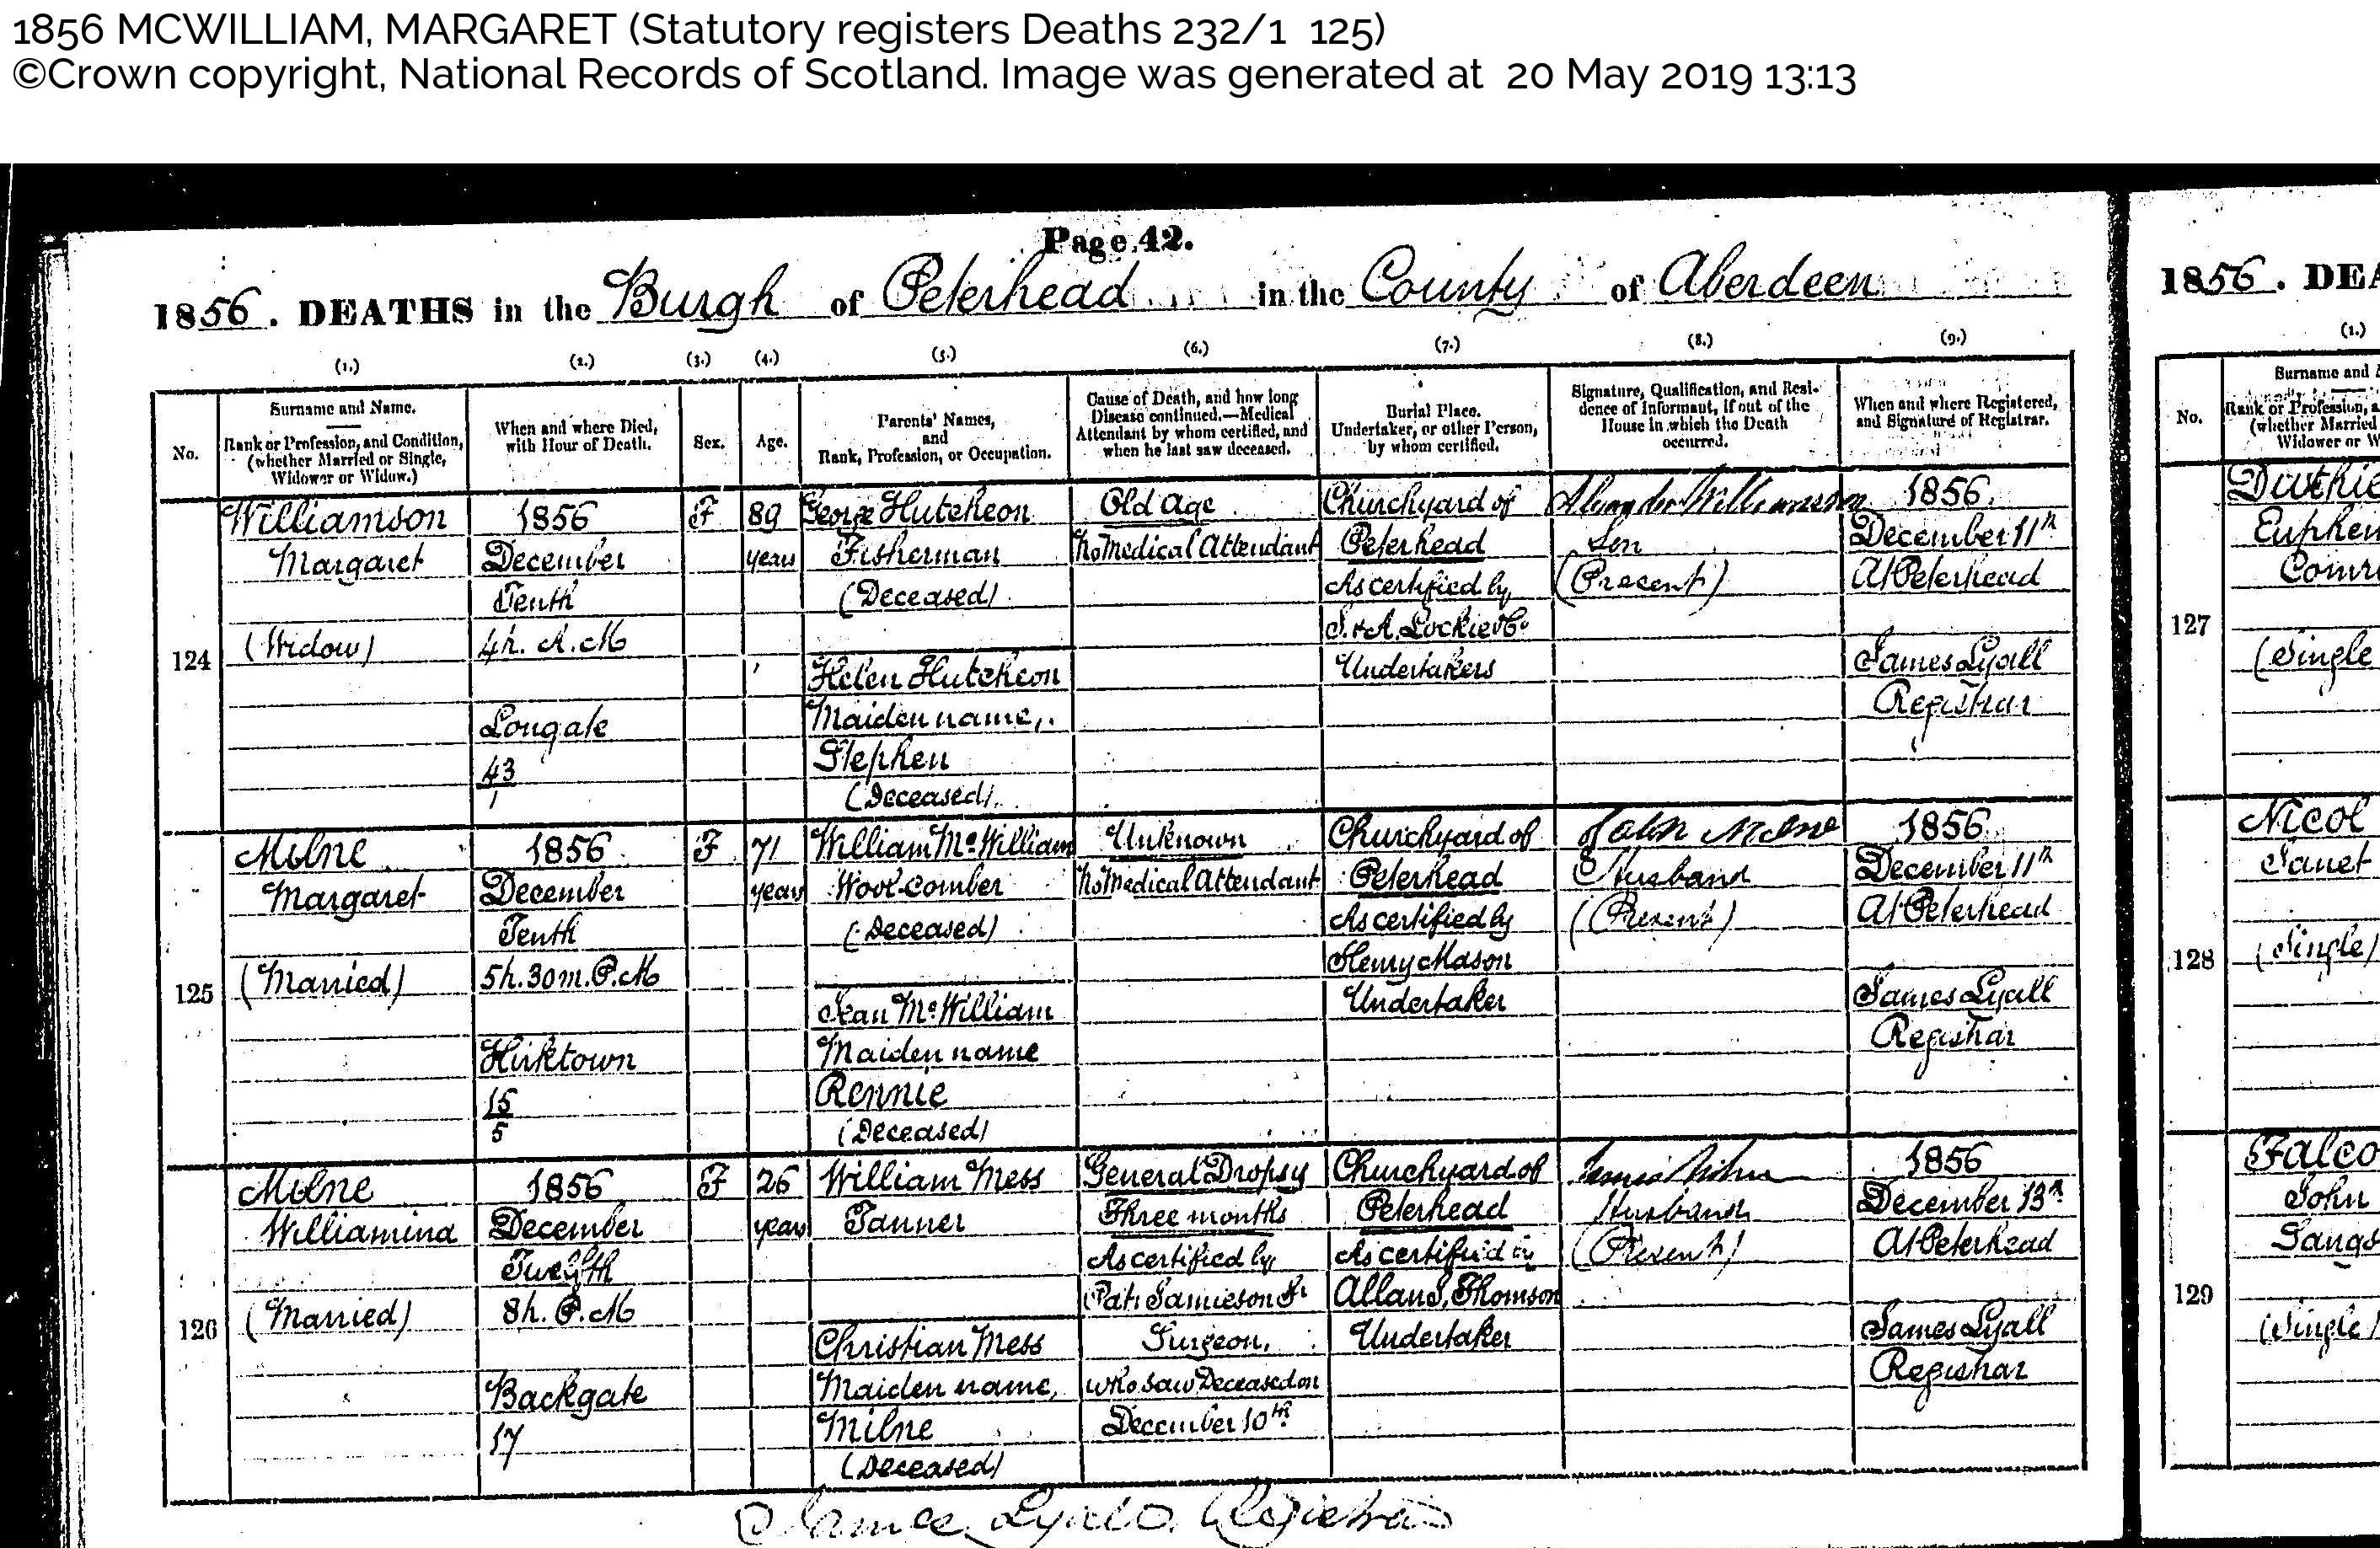 1856 MCWILLIAM, MARGARET (Statutory registers Deaths 232/1 125)
©Crown copyright, National Records of Scotland. Image was generated at 20 May 2019 13:13
Page 42.
1856. DEATHS in the Burgh of Peterhead in the County of Aberdeen
(1.) (2.) (3.) (4.) (5.) (6.) (7.) (8.) (9.)
No.
Surname and Name.
Rank or Profession, and Condition,
(whether Married or Single,
Widower or Widow.)
When and where Died,
with Hour of Death.
Sex.
Age.
Parents' Names,
and
Rank, Profession, or Occupation.
Cause of Death, and how long
Disease continued.—Medical
Attendant by whom certified, and
when he last saw deceased.
Burial Place.
Undertaker, or other Person,
by whom certified.
Signature, Qualification, and Resi-
dence of Informant, if out of the
House in which the Death
occurred.
When and where Registered,
and Signature of Registrar.
124
Williamson
Margaret
(Widow)
1856
December
Tenth
4h. A.M
Longate
43
1
F
89
years
George Hutcheon
Fisherman
(Deceased)
Helen Hutcheon
Maiden name,
Stephen
(Deceased)
Old Age
No Medical Attendant
Churchyard of
Peterhead
As certified by
J. & A. Lockie & Co
Undertakers
Alexander Williamson
Son
(Present)
1856
December 11th
At Peterhead
James Lyall
Registrar
125
Milne
Margaret
(Married)
1856
December
Tenth
5h. 30m. P.M
Kirktown
15
5
F
71
years
William McWilliam
Wool-comber
(Deceased)
Jean McWilliam
Maiden name
Rennie
(Deceased)
Unknown
No Medical Attendant
Churchyard of
Peterhead
As certified by
Henry Mason
Undertaker
John Milne
Husband
(Present)
1856
December 11th
At Peterhead
James Lyall
Registrar
126
Milne
Williamina
(Married)
1856
December
Twelfth
8h. P.M
Backgate
17
F
26
years
William Mess
Tanner
Christian Mess
Maiden name,
Milne
(Deceased)
General Dropsy
Three months
As certified by
Pat. Jamieson Jr
Surgeon,
who saw Deceased on
December 10th
Churchyard of
Peterhead
As certified by
Allan S. Thomson
Undertaker
James Milne
Husband
(Present)
1856
December 13th
At Peterhead
James Lyall
Registrar
James Lyall Registrar
1856. DEA
(1.)
No.
Surname and
Rank or Profession, a
(whether Married
Widower or W
127
Duthie
Euphem
(Single
128
Nicol
Janet
(Single)
129
Falco
John
Sangs
(Single)